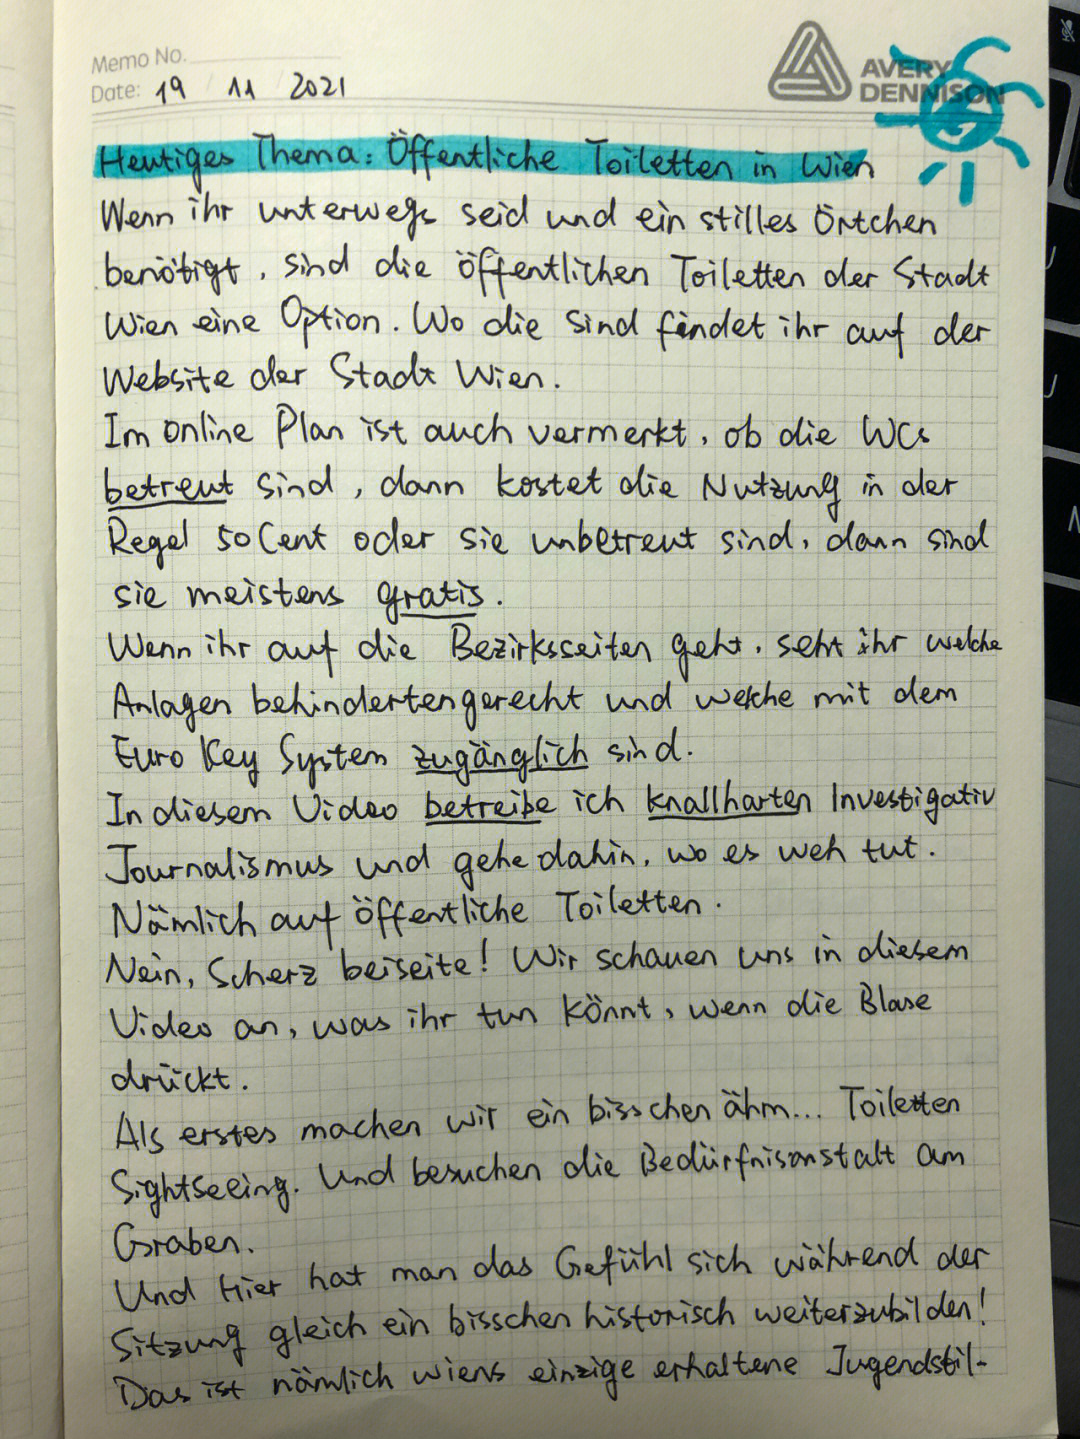 Memo No.
Date: 19 / 11 / 2021
AVERY
DENNISON
Heutiges Thema: Öffentliche Toiletten in Wien
Wenn ihr unterwegs seid und ein stilles Örtchen
benötigt, sind die öffentlichen Toiletten der Stadt
Wien eine Option. Wo die sind findet ihr auf der
Website der Stadt Wien.
Im online Plan ist auch vermerkt, ob die WCs
betreut sind, dann kostet die Nutzung in der
Regel 50 Cent oder sie unbetreut sind, dann sind
sie meistens gratis.
Wenn ihr auf die Bezirksseiten geht, seht ihr welche
Anlagen behindertengerecht und welche mit dem
Euro Key System zugänglich sind.
In diesem Video betreibe ich knallharten Investigativ
Journalismus und gehe dahin, wo es weh tut.
Nämlich auf öffentliche Toiletten.
Nein, Scherz beiseite! Wir schauen uns in diesem
Video an, was ihr tun könnt, wenn die Blase
drückt.
Als erstes machen wir ein bisschen ähm... Toiletten
Sightseeing. Und besuchen die Bedürfnisanstalt am
Graben.
Und hier hat man das Gefühl sich während der
Sitzung gleich ein bisschen historisch weiterzubilden!
Das ist nämlich wiens einzige erhaltene Jugendstil-